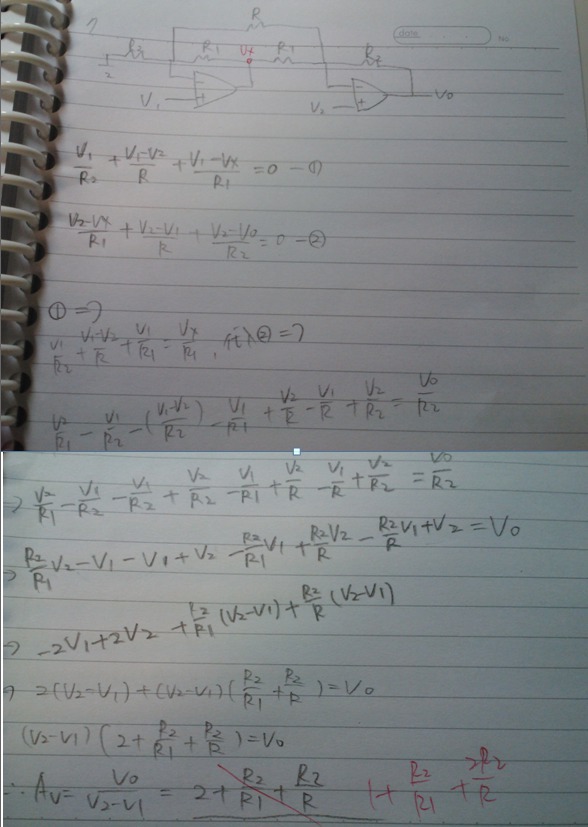 R
date
NO
R1 Vx R1
R2
V1
V2
V0
V1/R2 + (V1-V2)/R + (V1-Vx)/R1 = 0 - ①
(V2-Vx)/R1 + (V2-V1)/R + (V2-V0)/R2 = 0 - ②
① =>
V1/R2 + (V1-V2)/R + V1/R1 = Vx/R1 , 代入② =>
V2/R1 - V1/R2 - (V1-V2)/(R2) - V1/R1 + V2/R - V1/R + V2/R2 = V0/R2
=> V2/R1 - V1/R2 - V1/R2 + V2/R2 - V1/R1 + V2/R - V1/R + V2/R2 = V0/R2
=> R2/R1 V2 - V1 - V1 + V2 - R2/R1 V1 + R2V2/R - R2/R V1 + V2 = V0
=> -2V1 + 2V2 + R2/R1 (V2-V1) + R2/R (V2-V1)
=> 2(V2-V1) + (V2-V1) (R2/R1 + R2/R) = V0
(V2-V1) (2 + R2/R1 + R2/R) = V0
∴ Av = V0/(V2-V1) = 2 + R2/R1 + R2/R 1 + R2/R1 + 2R2/R